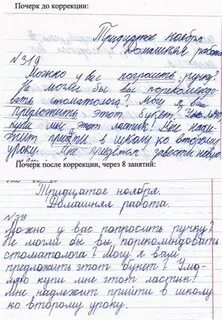 Почерк до коррекции:
Тридцатое ноября.
Домашняя работа.
№319
Можно у вас попросить ручку?
Не могли бы вы порекомендо-
вать стоматолога? Могу я вам
предложить этот букет?
мне этот ластик. Мне надо
прийти в школу ко второму
уроку.
Почерк после коррекции, через 8 занятий:
Тридцатое ноября.
Домашняя работа.
Можно у вас попросить ручку?
Не могли бы вы порекомендовать
стоматолога? Могу я вам
предложить этот букет? Умо-
ляю купи мне этот ластик!
Мне надлежит прийти в школу
ко второму уроку.